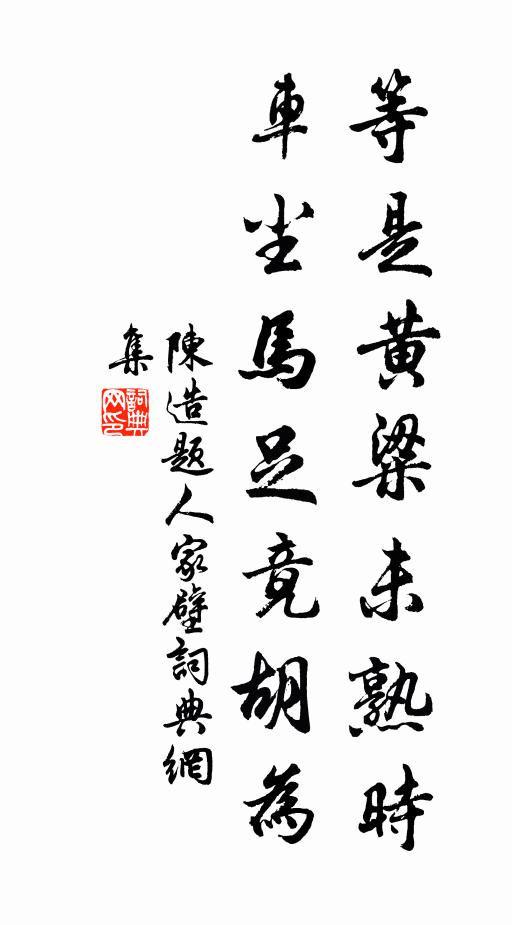 等是黃粱未熟時
車塵馬足竟胡為
陳造題人家壁詞典網
集
詞典網印